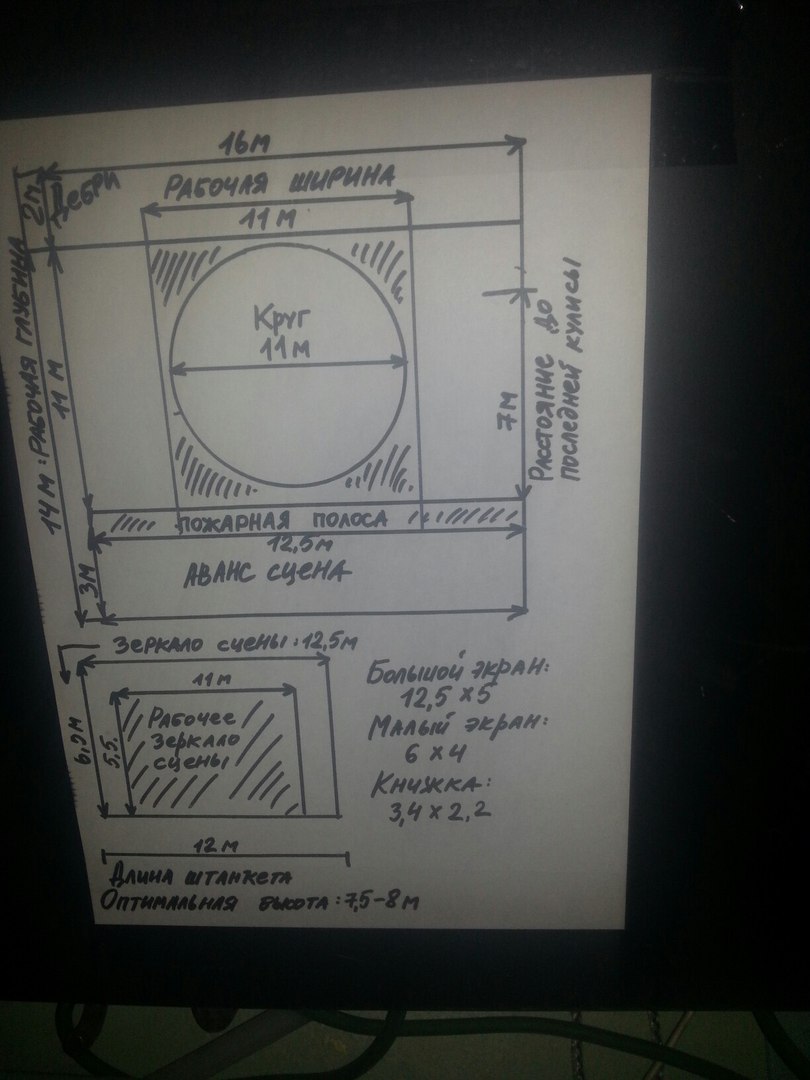 16м
2м
Дебри
РАБОЧАЯ ШИРИНА
11 м
14 м : РАБОЧАЯ ГЛУБИНА
11 м
Круг
11 м
7м
Расстояние до
последней кулисы
ПОЖАРНАЯ ПОЛОСА
12,5м
3м
АВАНС СЦЕНА
Зеркало сцены : 12,5м
11м
5,5
Рабочее
Зеркало
сцены
Большой экран:
12,5 × 5
Малый экран:
6 × 4
Книжка:
3,4 × 2,2
12 м
Длина штанкета
Оптимальная высота : 7,5-8 м